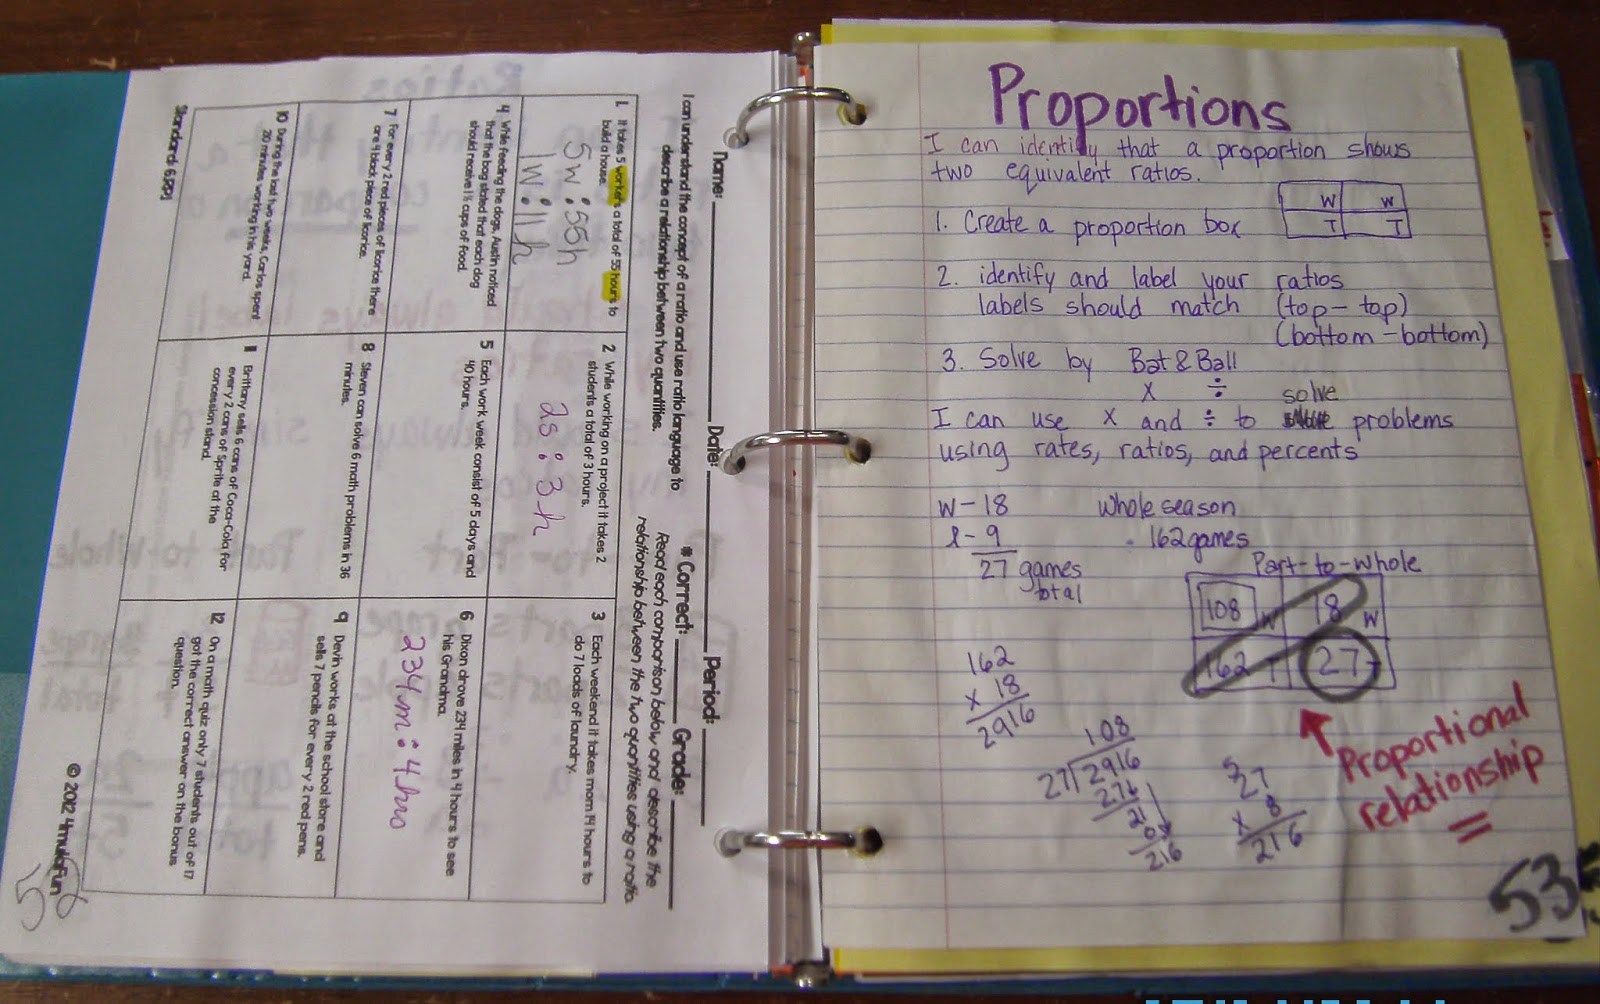 Name: Date: Period:
I can understand the concept of a ratio and use ratio language to
describe a relationship between two quantities.
# Correct: Grade:
Read each comparison below and describe the
relationship between the two quantities using a ratio.
1. It takes 5 workers a total of 55 hours to
build a house.
5w : 55h
1w : 11h
2 While working on a project it takes 2
students a total of 3 hours.
2s : 3h
3 Each weekend it takes mom 14 hours to
do 7 loads of laundry.
4 While feeding the dogs, Austin noticed
that the bag stated that each dog
should receive 1½ cups of food.
5 Each work week consist of 5 days and
40 hours.
6 Dixon drove 234 miles in 4 hours to see
his Grandma.
234m : 4hrs
7 For every 2 red pieces of licorice there
are 4 black piece of licorice.
8 Steven can solve 6 math problems in 36
minutes.
9 Devin works at the school store and
sells 7 pencils for every 2 red pens.
10 During the last two weeks, Carlos spent
210 minutes working in his yard.
11 Brittany sells 6 cans of Coca-Cola for
every 2 cans of Sprite at the
concession stand.
12 On a math quiz only 7 students out of 17
got the correct answer on the bonus
question.
Standard: 6.RP.1
© 2012 4mulaFun
52
Proportions
I can identify that a proportion shows
two equivalent ratios.
W W
T T
1. Create a proportion box
2. identify and label your ratios
labels should match (top - top)
(bottom - bottom)
3. Solve by Bat & Ball
x ÷ solve
I can use x and ÷ to problems
using rates, ratios, and percents
W - 18 whole season
l - 9 162 games
27 games
total
Part-to-whole
108 W 18 W
162 T 27 T
162
x 18
2916
108
27 2916
27
21
0
216
5
27
x 8
216
Proportional
relationship
53